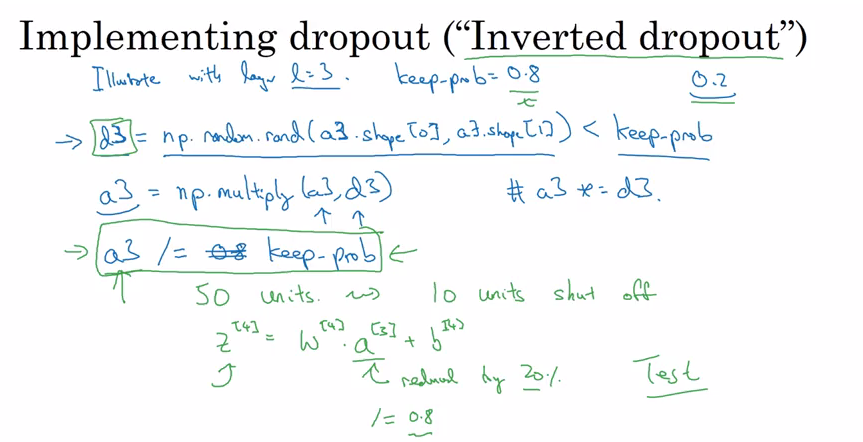 Implementing dropout (“Inverted dropout”)
Illustrate with layer l=3. keep-prob= 0.8 0.2
x
→ d3 = np.random.rand(a3.shape[0], a3.shape[1]) < keep-prob
a3 = np.multiply(a3, d3) # a3 *= d3.
→ a3 /= 0.8 keep-prob ←
50 units. ⇝ 10 units shut off
z^[4] = W^[4] · a^[3] + b^[4]
reduced by 20%. Test
/= 0.8